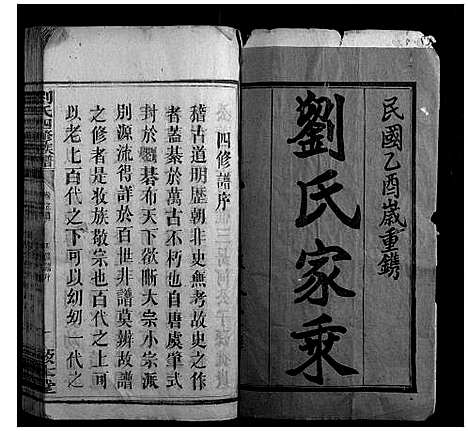 民國乙酉歲重鐫
劉氏家乘
四修譜序
稽古道明歷朝非史無考故史之作
者蓋綦於萬古不朽也自唐虞肇式
封於國碁布天下欲晰大宗小宗派
別源流得詳於百世非譜莫辨故譜
之修者是收族敬宗也百代之上可
以老上百代之下可以幼幼一代之
劉氏四修族譜